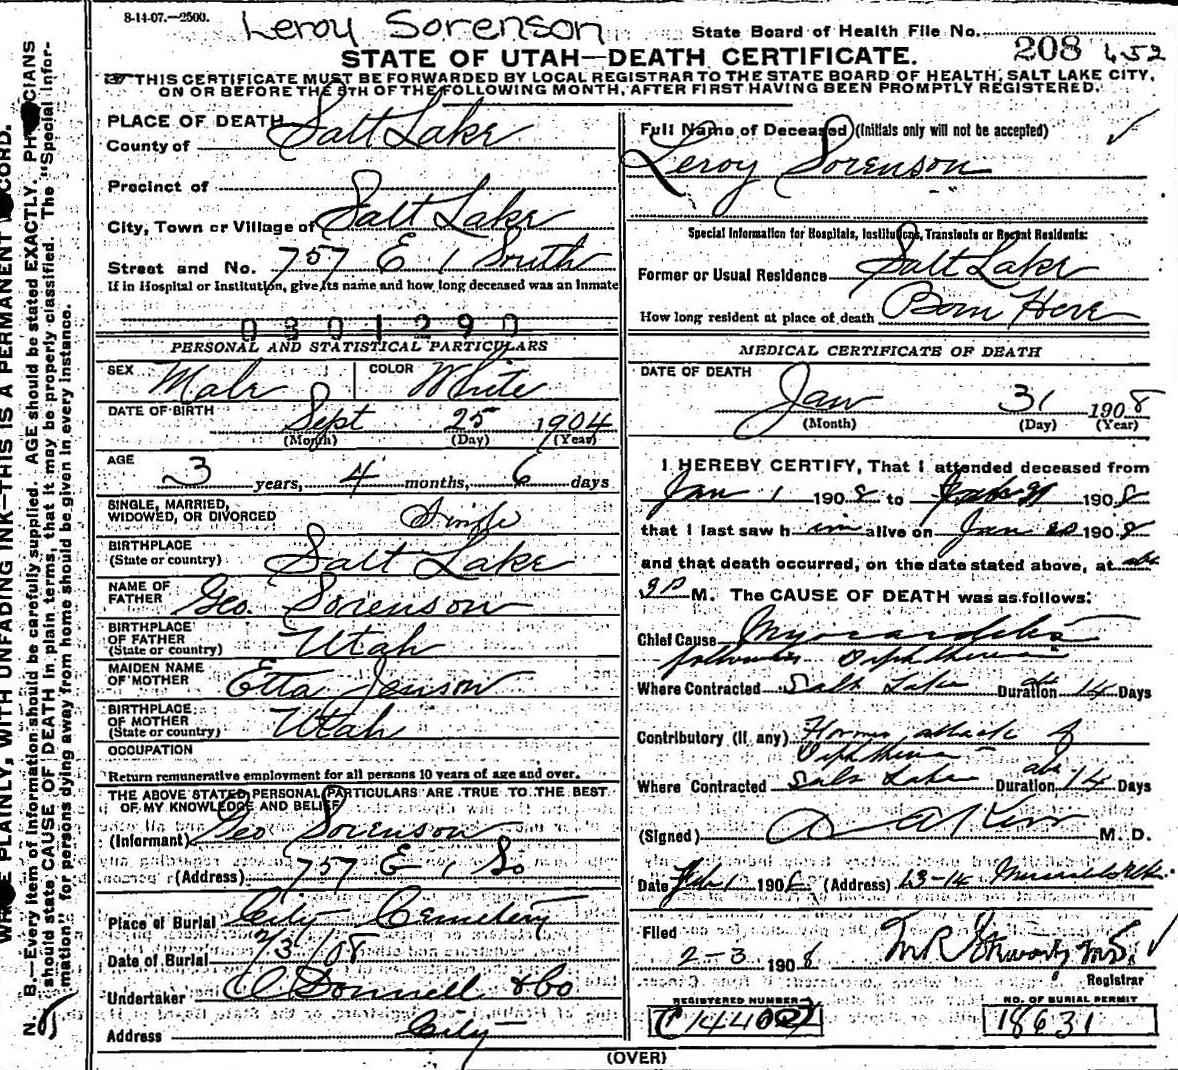 8-14-07.—2500.
Leroy Sorenson
State Board of Health File No.
208 452
STATE OF UTAH—DEATH CERTIFICATE.
THIS CERTIFICATE MUST BE FORWARDED BY LOCAL REGISTRAR TO THE STATE BOARD OF HEALTH, SALT LAKE CITY,
ON OR BEFORE THE 5TH OF THE FOLLOWING MONTH, AFTER FIRST HAVING BEEN PROMPTLY REGISTERED.
PLACE OF DEATH
County of Salt Lake
Precinct of
City, Town or Village of Salt Lake
Street and No. 757 E 1 South
If in Hospital or Institution, give its name and how long deceased was an Inmate
0301290
PERSONAL AND STATISTICAL PARTICULARS
SEX Male COLOR White
DATE OF BIRTH Sept 25 1904
(Month) (Day) (Year)
AGE 3 years, 4 months, 6 days
SINGLE, MARRIED,
WIDOWED, OR DIVORCED Single
BIRTHPLACE
(State or country) Salt Lake
NAME OF
FATHER Geo. Sorenson
BIRTHPLACE
OF FATHER
(State or country) Utah
MAIDEN NAME
OF MOTHER Etta Jenson
BIRTHPLACE
OF MOTHER
(State or country) Utah
OCCUPATION
Return remunerative employment for all persons 10 years of age and over.
THE ABOVE STATED PERSONAL PARTICULARS ARE TRUE TO THE BEST
OF MY KNOWLEDGE AND BELIEF
(Informant) Geo Sorenson
(Address) 757 E 1 So
Place of Burial City Cemetery
Date of Burial 2/3/08
Undertaker O Donnell & Co
Address City
Full Name of Deceased (Initials only will not be accepted)
Leroy Sorenson
Special Information for Hospitals, Institutions, Transients or Recent Residents:
Former or Usual Residence Salt Lake
How long resident at place of death Born Here
MEDICAL CERTIFICATE OF DEATH
DATE OF DEATH
Jan 31 1908
(Month) (Day) (Year)
I HEREBY CERTIFY, That I attended deceased from
Jan 1 1908 to 1908
that I last saw him alive on Jan 1908
and that death occurred, on the date stated above, at abt
9 P M. The CAUSE OF DEATH was as follows:
Chief Cause Myocarditis
following Diphtheria
Where Contracted Salt Lake Duration abt 14 Days
Contributory (if any) attack of
Diphtheria
Where Contracted Salt Lake Duration abt 14 Days
(Signed) M. D.
Date Feb 1 1908 (Address)
Filed
2-3 1908
Registrar
REGISTERED NUMBER
NO. OF BURIAL PERMIT
18631
(OVER)
WRITE PLAINLY, WITH UNFADING INK—THIS IS A PERMANENT RECORD.
N. B.—Every item of information should be carefully supplied. AGE should be stated EXACTLY. PHYSICIANS
should state CAUSE OF DEATH in plain terms, that it may be properly classified. The "Special Infor-
mation" for persons dying away from home should be given in every instance.